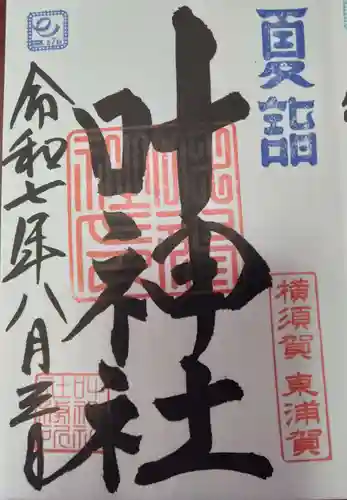 夏詣
横須賀 東浦賀
叶神社
令和七年八月三日